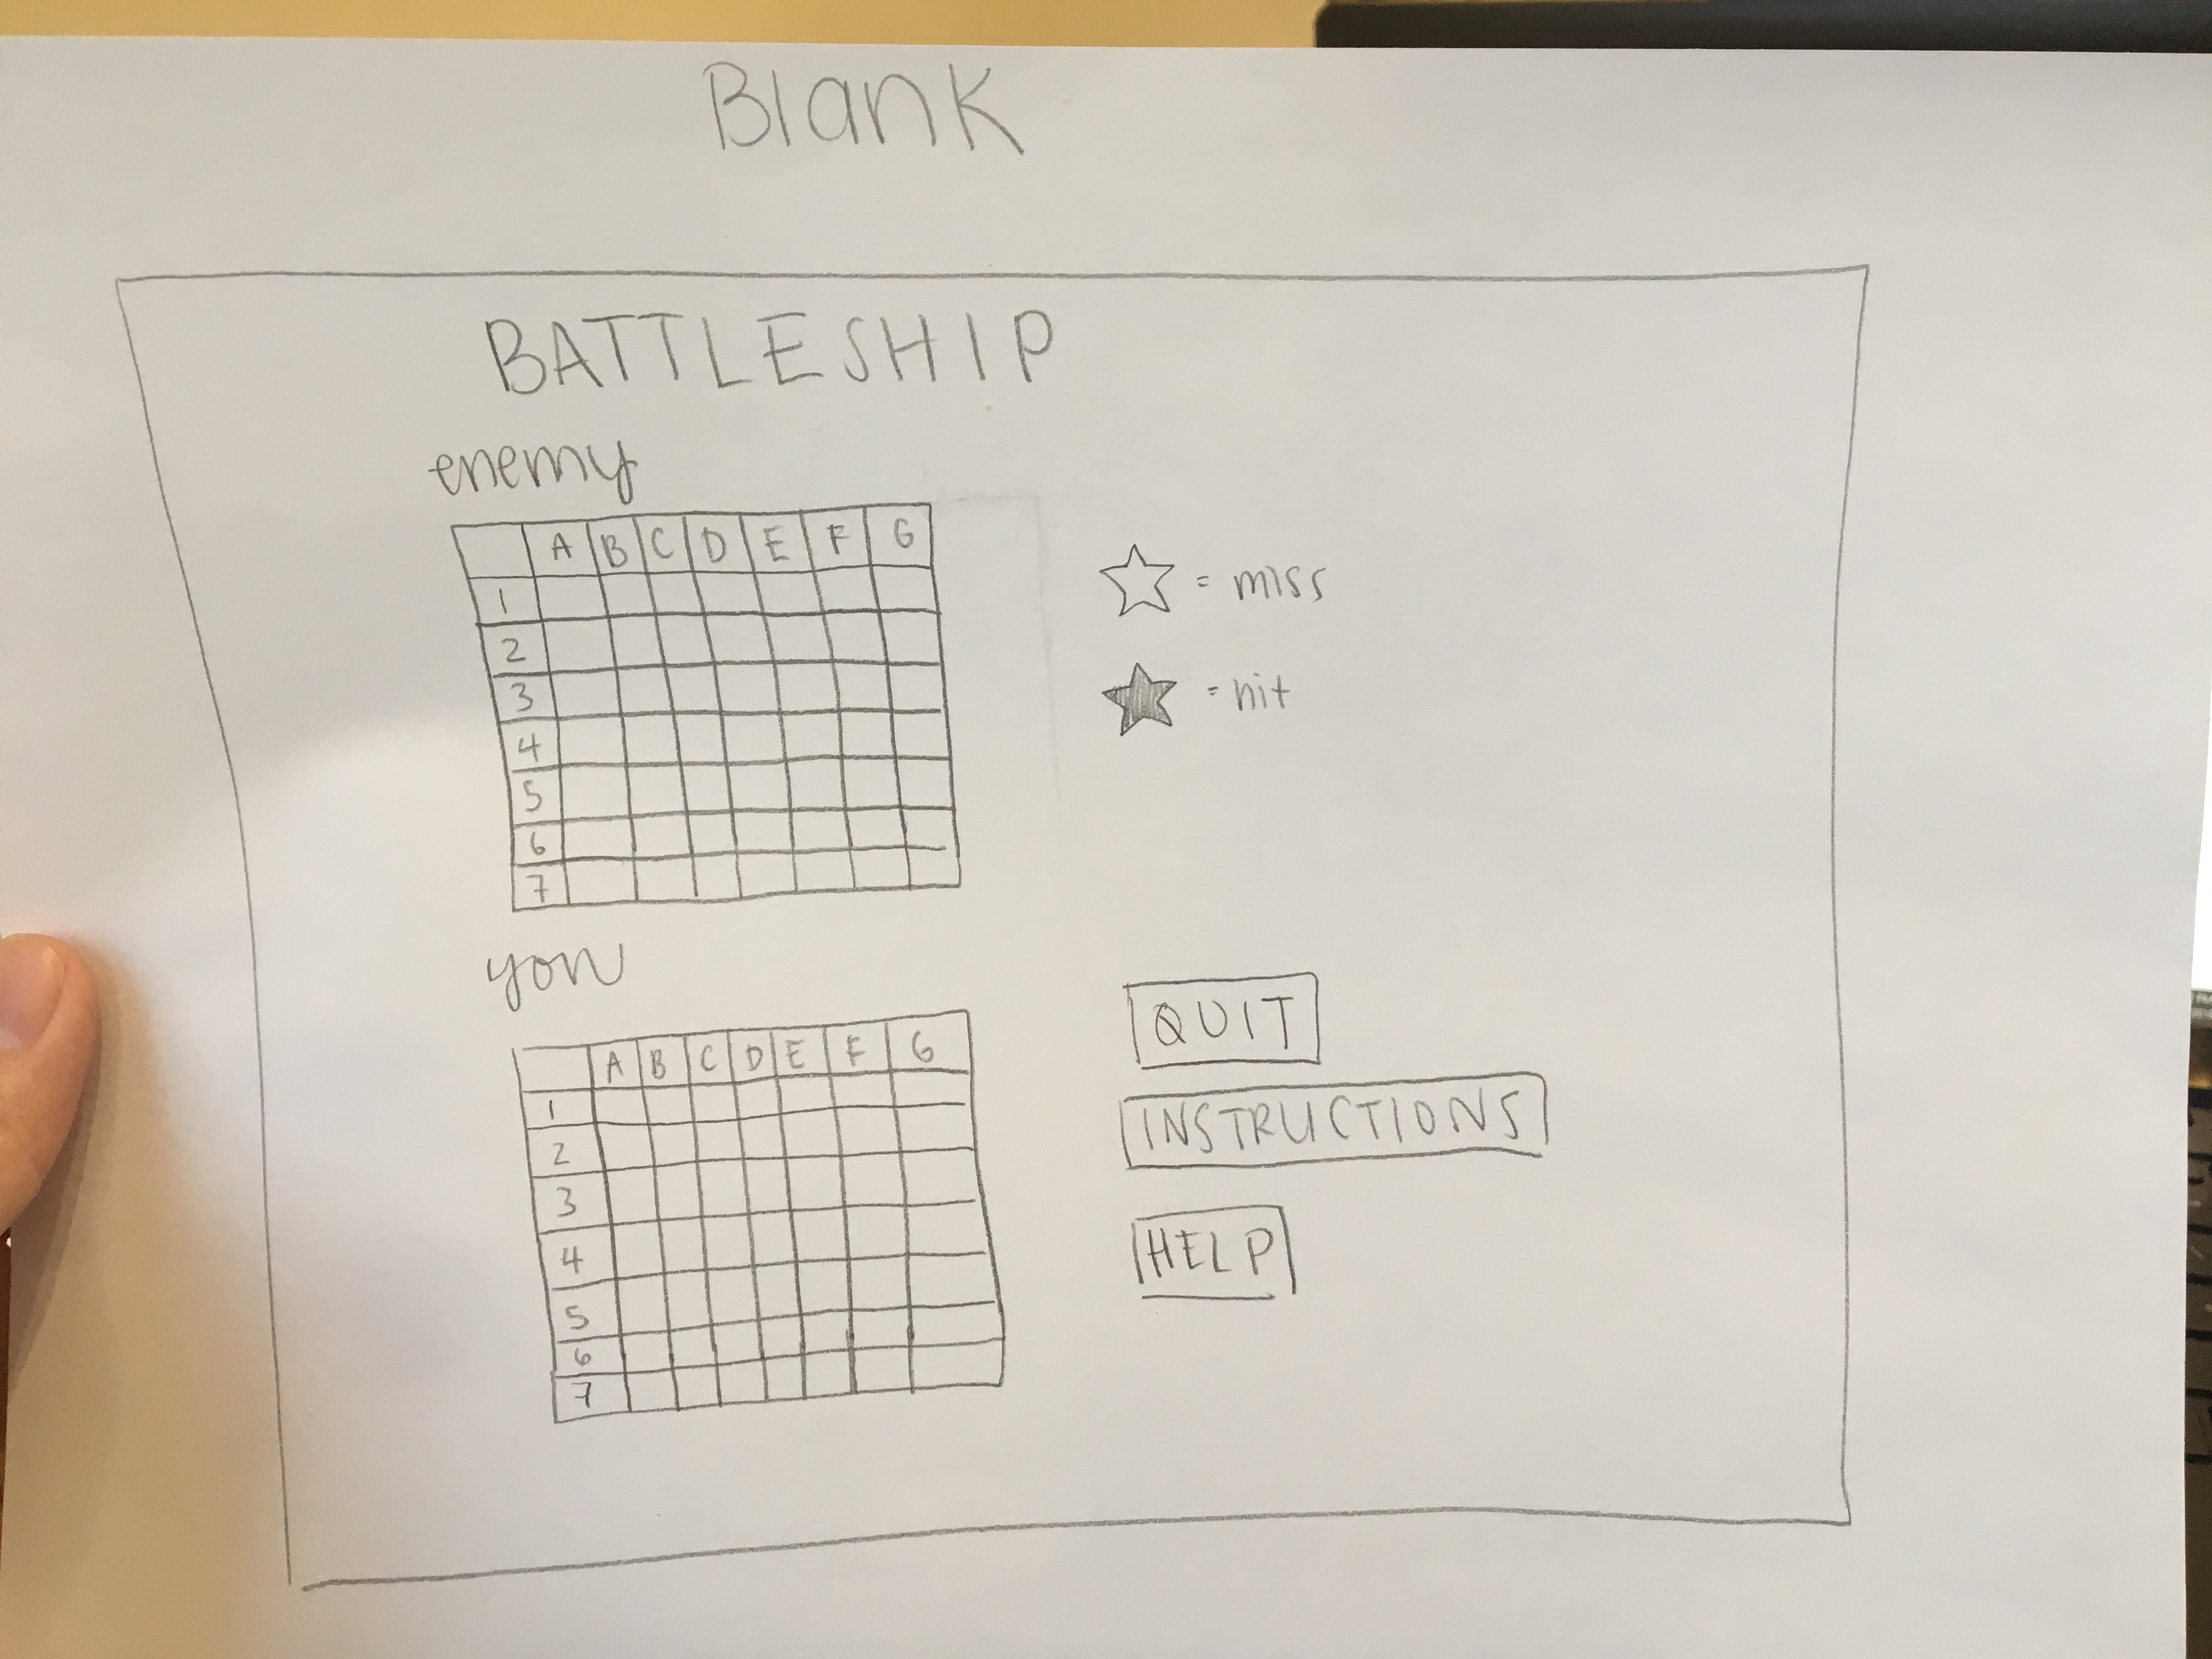 Blank
BATTLESHIP
enemy
A B C D E F G
1
2
3
4
5
6
7
= miss
= hit
you
A B C D E F G
1
2
3
4
5
6
7
QUIT
INSTRUCTIONS
HELP